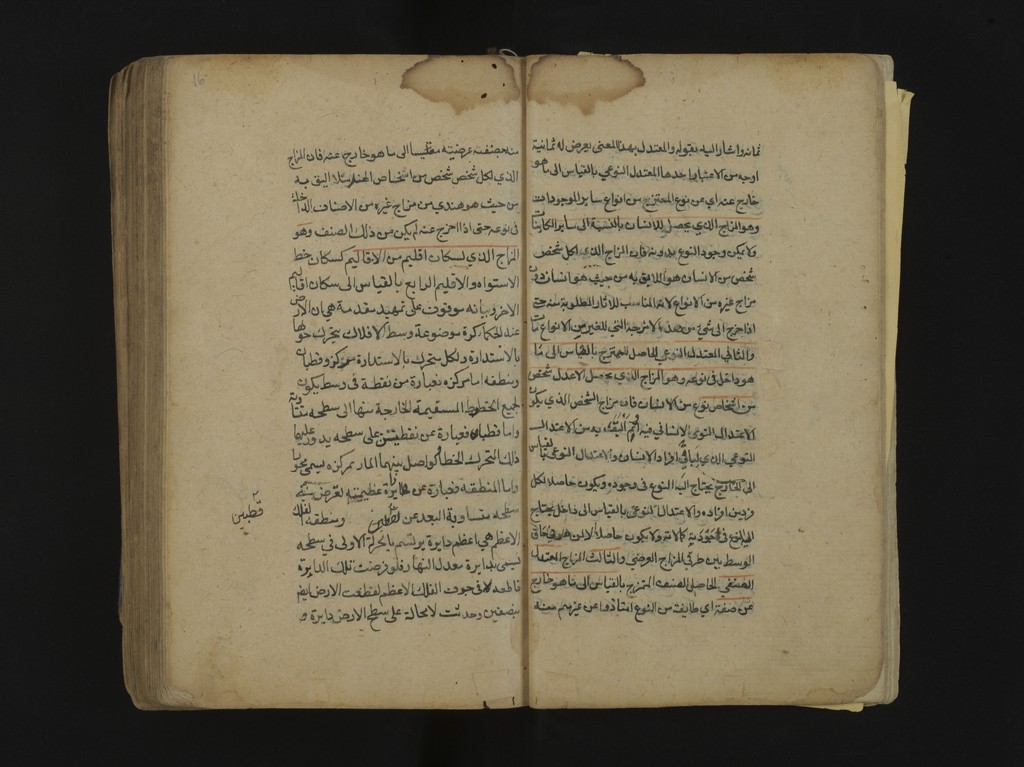 ثمانية واشار اليه بقوله والمعتدل بهذا المعنى يعرض له ثمانية
اوجه من الاعتبارات احدها المعتدل النوعي بالقياس الى ما هو
خارج عنه اي من نوع الممتزج من انواع ساير الموجودات
وهو المزاج الذي يحصل للانسان بالنسبة الى ساير الكاينات
ولا يمكن وجود النوع بدونه فان المزاج الذي لكل شخص
شخص من الانسان هو اللايق به من حيث هو انسان دون
مزاج غيره من الانواع لانه المناسب للاثار المطلوبة منه حتى
اذا خرج الى شيء من هذه الامزجة التي للغير من الانواع مات
والثاني المعتدل النوعي الحاصل للممتزج بالقياس الى ما
هو داخل في نوعه وهو المزاج الذي يحصل لاعدل شخص
من اشخاص نوع من الانسان فان مزاج الشخص الذي يكون
الاعتدال النوعي الانساني فيه اتم اليق به من الاعتدال
النوعي الذي لباقي افراد الانسان والاعتدال النوعي بالقياس
الى الخارج يحتاج اليه النوع في وجوده ويكون حاصلا لكل
فرد من افراده والاعتدال النوعي بالقياس الى داخل يحتاج
اليه النوع في جودة كمالاته ولا يكون حاصلا الا لمن هو في حاق
الوسط بين طرفي المزاج العرضي والثالث المزاج المعتدل
الصنفي الحاصل لصنف الممتزج بالقياس الى ما هو خارج
عن صنفه اي طايفة من النوع امتازوا عن غيرهم منه
16
منه بصنفه عرضية مقيسا الى ما هو خارج عنه فان المزاج
الذي لكل شخص شخص من اشخاص الهند مثلا اليق به
من حيث هو هندي من مزاج غيره من الاصناف الداخلة
في نوعه حتى اذا خرج عنه لم يكن من ذلك الصنف وهو
المزاج الذي لسكان اقليم من الاقاليم كسكان خط
الاستواء والاقليم الرابع بالقياس الى سكان اقاليم
الاخر وبيانه موقوف على تمهيد مقدمة هي ان الارض
عند الحكماء كرة موضوعة وسط الافلاك يتحرك حولها
بالاستدارة ولكل متحرك بالاستدارة مركز وقطبان
ومنطقة اما مركزه فعبارة من نقطة في وسط يكون
جميع الخطوط المستقيمة الخارجة منها الى سطحه متساوية
واما قطباه فعبارة عن نقطتين على سطحه يدور عليهما
ذلك المتحرك الخط الواصل بينهما المار بمركزه يسمى محورا
واما المنطقة فعبارة عن دايرة عظيمة تفرض
سطحه متساوية البعد عن ومنطقة الفلك
قطبين
الاعظم هي اعظم دايرة يرتسم بالحركة الاولى في سطحه
تسمى دايرة معدل النهار فلو فرضت تلك الدايرة
قاطعة لا في جوف الفلك الاعظم لقطعت الارض
بنصفين وحدثت لا محالة على سطح الارض دايرة و